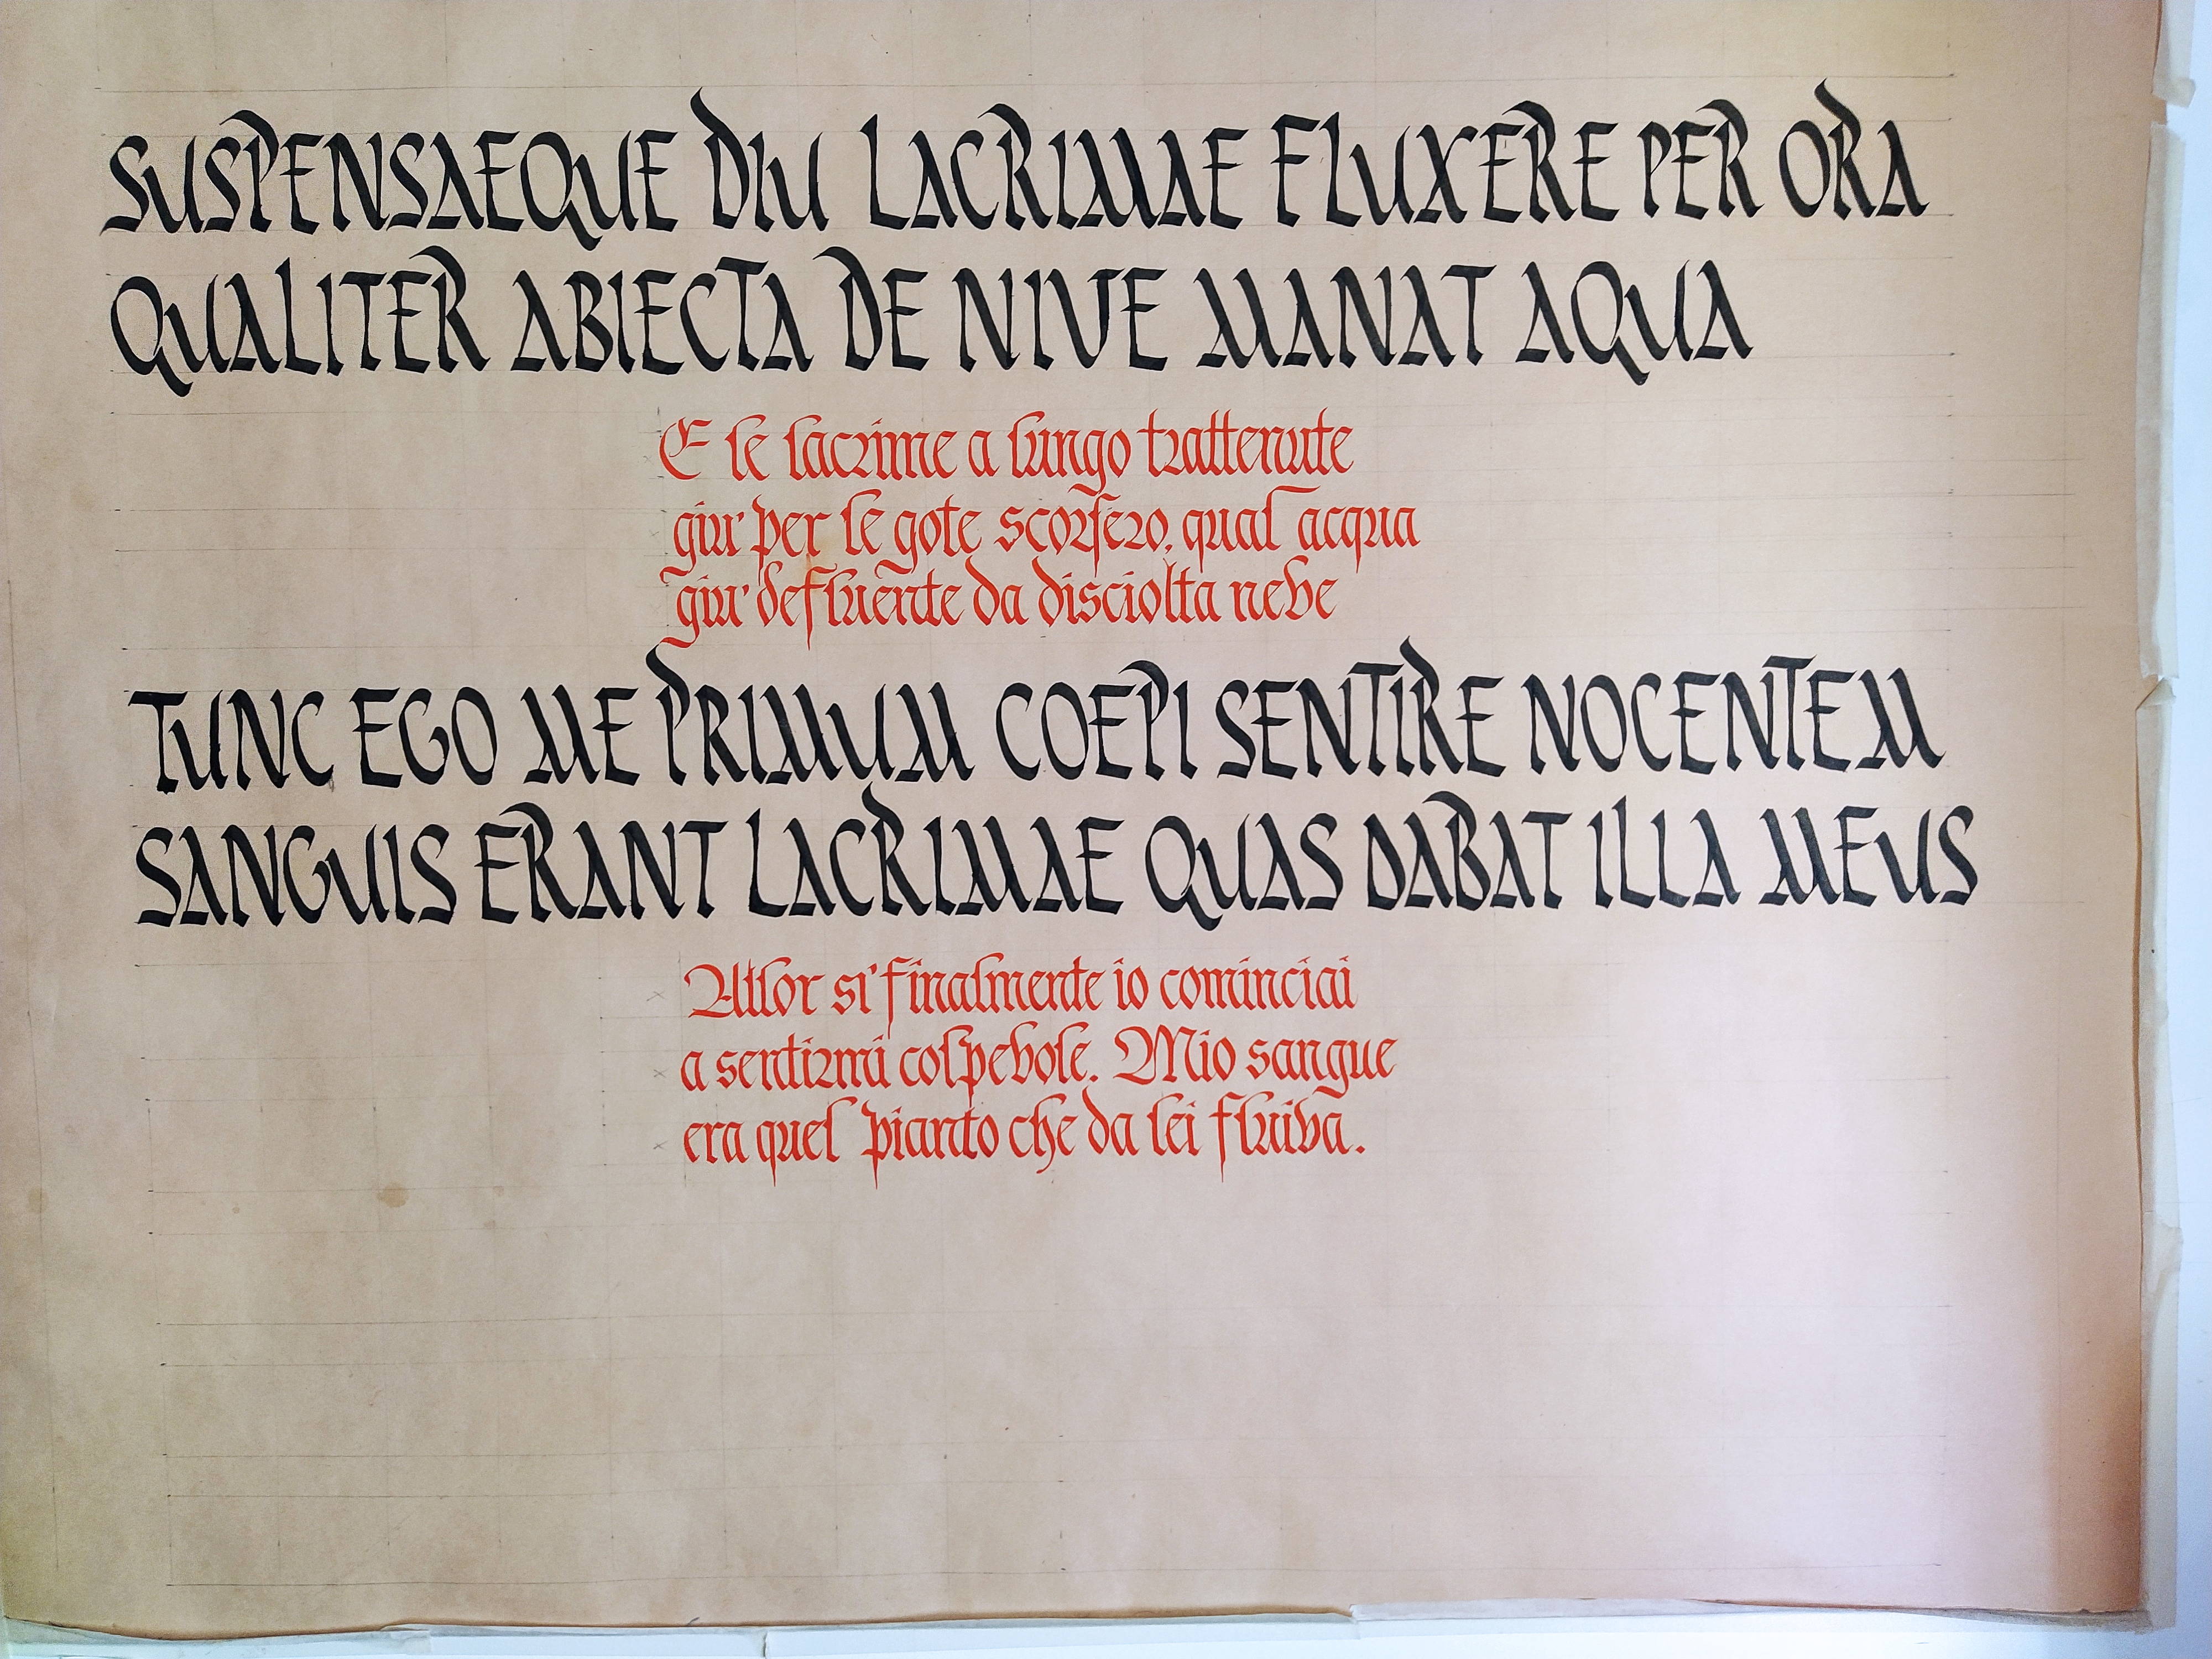 SUSPENSAEQUE DIU LACRIMAE FLUXERE PER ORA
QUALITER ABIECTA DE NIVE MANAT AQUA
E le lacrime a lungo trattenute
giu' per le gote scorsero, qual acqua
giu' defluente da disciolta neve
TUNC EGO ME PRIMUM COEPI SENTIRE NOCENTEM
SANGUIS ERANT LACRIMAE QUAS DABAT ILLA MEUS
Allor si' finalmente io cominciai
a sentirmi colpevole. Mio sangue
era quel pianto che da lei fluiva.